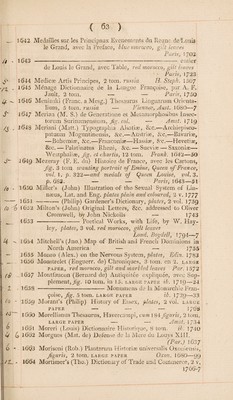 ( 63 )
1642 Medailles sur les Principaux Evenements du Regne de Louis
le Grand, avec la Preface, blue morocco, gilt leaves
Paris, 1702
1643 ——— entier
de Louis le Grand, avec Table, red morocco, gilt leaves
Paris, 1723
1644 Medicæ Artis Principes, 2 tom. russia H. Steph. 1567
1645 Ménage Dictionnaire de la Langue Françoise, par A. F.
Jault, 2 tom. Paris, 1750
1646 Meninski (Franc. a Mesg.) Thesaurus Linguarum Orienta-
lium, 3 tom. russia Viennæ, Aust. 1680—7
1647 Merian (M. S.) de Generatione et Metamorphosibus Insec-
torum Surinamensium, fig. col. Amst. 1719
1648 Meriani (Matt.) Topographia Alsatiæ, &c.—Archiepisco-
patuum Moguntinensis, &c.—Austriæ, &c.—Bavariæ,
—Bohemiæ, &c.—Franconiæ—Hassiæ, &c.—Helvetiæ,
&c.—Palatinatus Rheni, &c.—Sueviæ—Saxoniæ—
Westphaliæ, fig. et chartis, 12 tom. Franf. 1644—50
1649 Mezeray (F. E. du) Histoire de France, avec les Cartons,
fig. 3 tom. wanting portrait of Eudes, Duc de France,
vol. 1. p. 322—and medals of Queen Louise, vol. 3.
p. 682. Paris, 1643—51
1650 Miller's (John) Illustration of the Sexual System of Lin-
næus, Lat. and Eng. plates plain and coloured, 2 v. 1777
1651 ——— (Philip) Gardener's Dictionary, plates, 2 vol. 1759
1652 Milton's (John) Original Letters, &c. addressed to Oliver
Cromwell, by John Nickolls 1743
1653 ——— Poetical Works, with Life, by W. Hay-
ley, plates, 3 vol. red morocco, gilt leaves
Lond. Boydell, 1794—7
1654 Mitchell's (Jno.) Map of British and French Dominions in
North America 1755
1655 Monro (Alex.) on the Nervous System, plates, Edin. 1783
1656 Monstrelet (Enguerr. de) Chroniques, 3 tom. en 2. LARGE
PAPER, red morocco, gilt and marbled leaves Par. 1572
1657 Montfaucon (Bernard de) Antiquité expliquée, avec Sup-
plement, fig. 10 tom. in 15. LARGE PAPER ib. 1719—24
1658 ——— Monumens de la Monarchie Fran-
çoise, fig. 5 tom. LARGE PAPER ib. 1729—33
1659 Morant's (Philip) History of Essex, plates, 2 vol. LARGE
PAPER 1768
1660 Morellianus Thesaurus, Havercampi, cum 181 figuris, 2 tom.
LARGE PAPER Amst. 1734
1661 Moreri (Louis) Dictionnaire Historique, 8 tom. ib. 1740
1662 Morgues (Mat. de) Defense de la Mere du Louys XIII.
(Par.) 1637
1663 Morisoni (Rob.) Plantarum Historiæ universalis Oxoniensis,
figuris, 2 tom. LARGE PAPER Oxon. 1680—99
1664 Mortimer's (Tho.) Dictionary of Trade and Commerce, 2 v.
1766-7